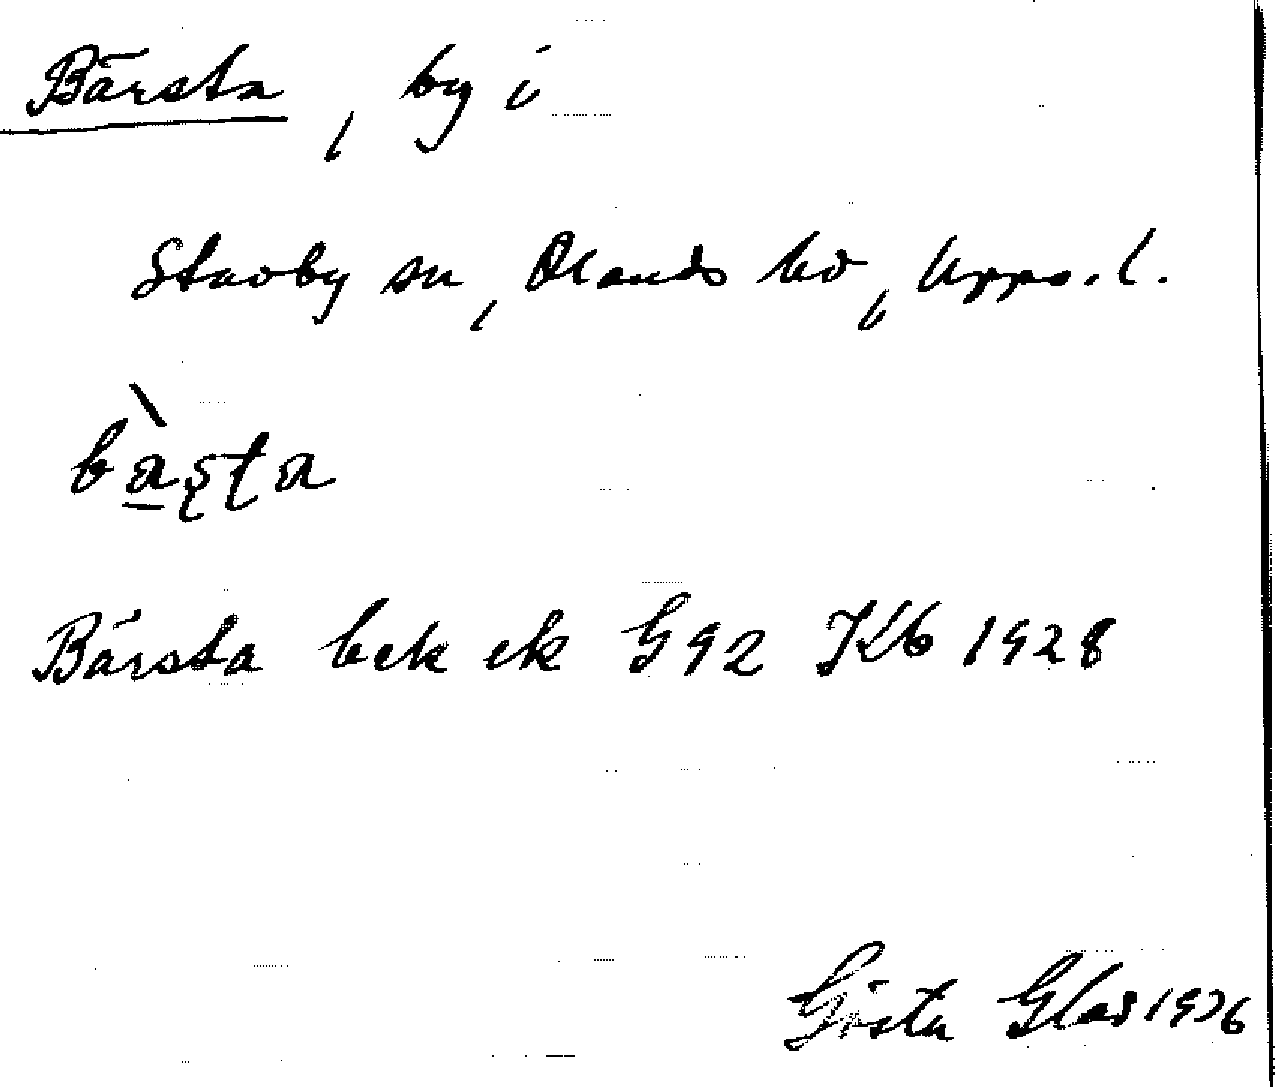 Bärsta, by i
Stavby sn, Olands hd, Upps. l.
bà̱ʂʈa
Bärsta bek ek G 92 JKb 1928
Gösta Glas 1936